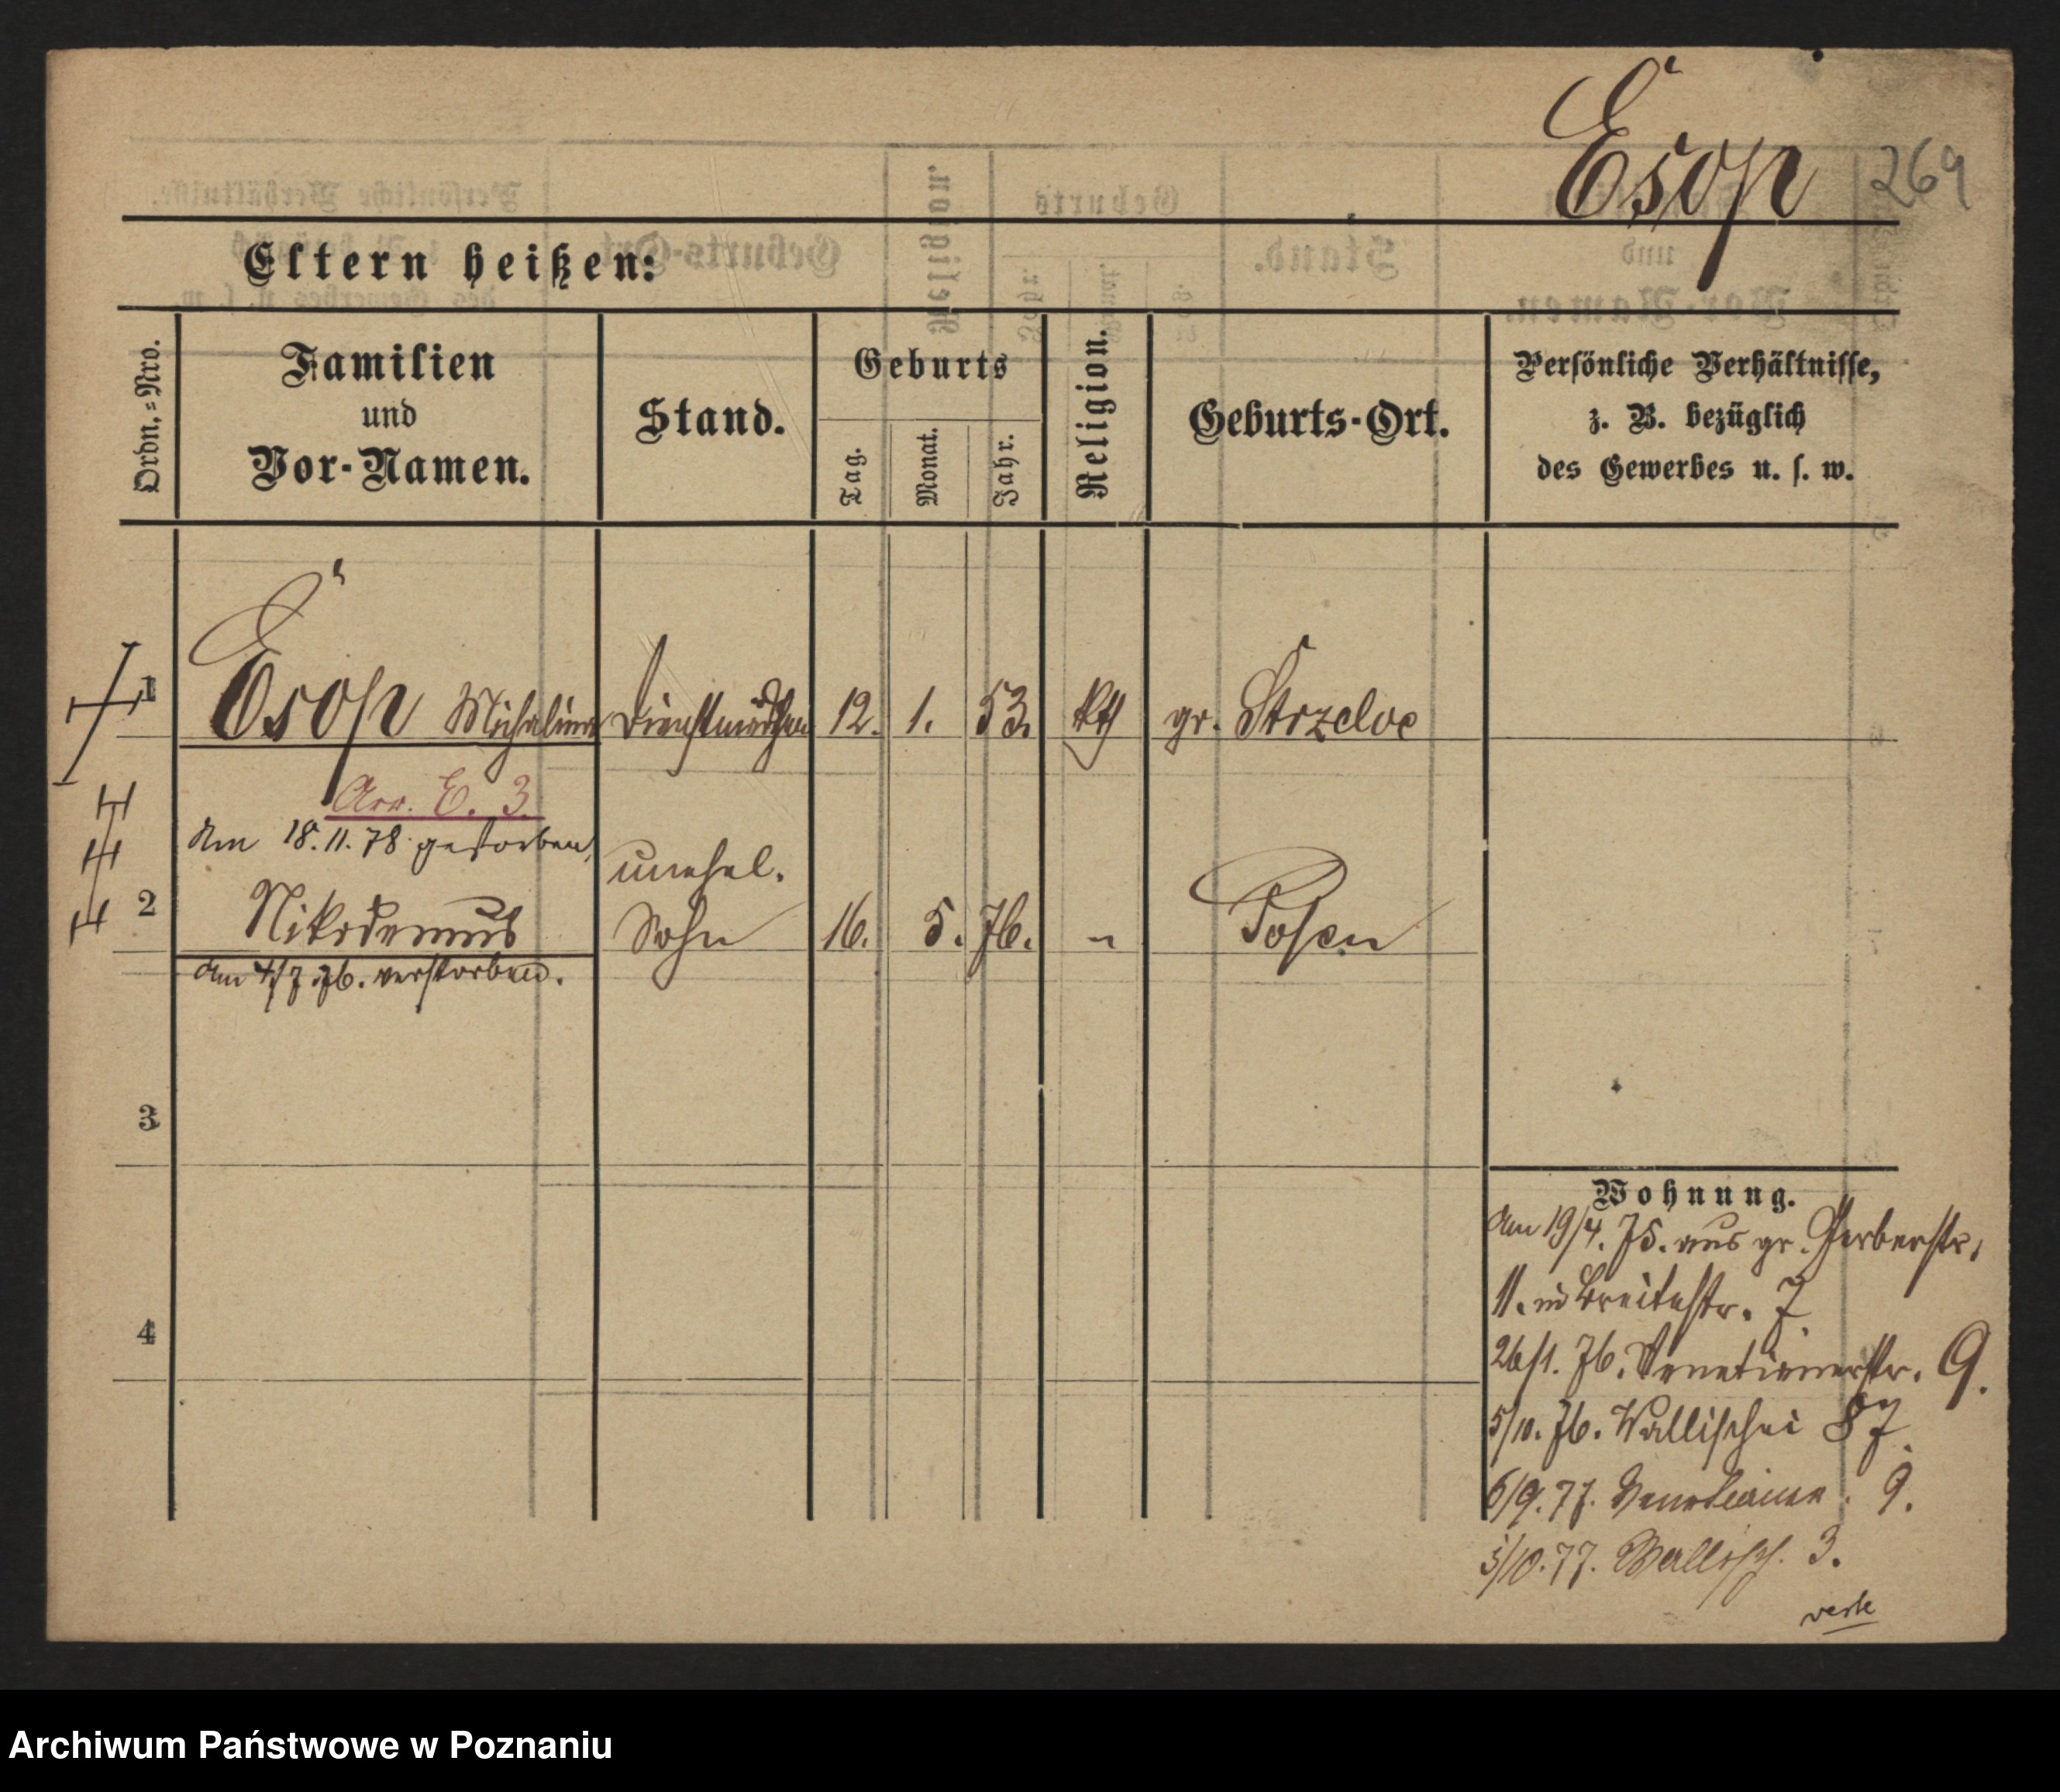 Esop
269
Eltern heißen:
Ordn.=Nro.
Familien
und
Vor-Namen.
Stand.
Geburts
Tag.
Monat.
Jahr.
Religion.
Geburts-Ort.
Persönliche Verhältnisse,
z. B. bezüglich
des Gewerbes u. s. w.
1 Esop Michalina Dienstmädchen 12. 1. 53. kth gr. Strzelce
Arr. E. 3.
Am 18.11.78 gestorben.
unehel.
2 Nikodemus Sohn 16. 5. 76. " Posen
Am 4/7 76. verstorben.
3
4
Wohnung.
Am 19/4. 75. aus gr. Gerberstr.
11. in Breitestr. 7
26/1. 76. Venetianerstr. 9.
5/10. 76. Wallischei 87.
6/9. 77. Venetianer. 9.
5/10. 77. Wallisch. 3.
Archiwum Państwowe w Poznaniu